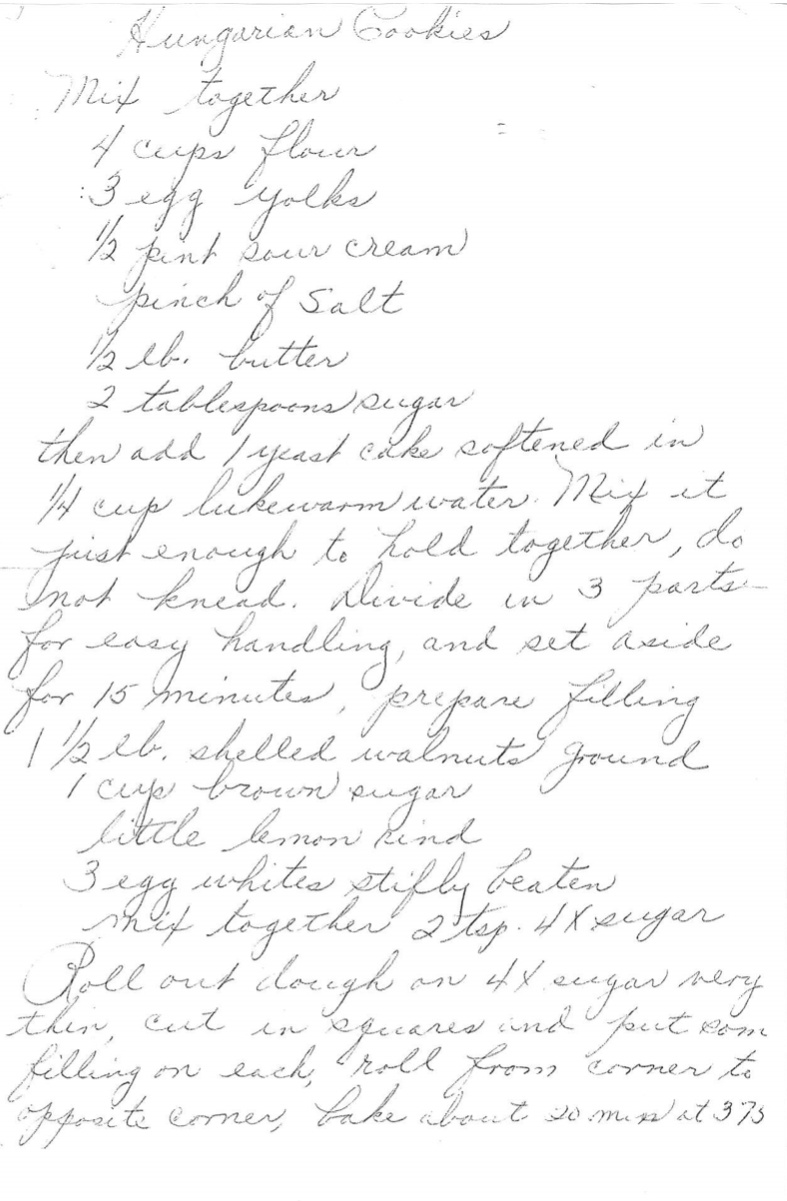 Hungarian Cookies
Mix together
4 cups flour
3 egg yolks
1/2 pint sour cream
pinch of Salt
1/2 lb. butter
2 tablespoons sugar
then add 1 yeast cake softened in
1/4 cup lukewarm water. Mix it
just enough to hold together, do
not knead. Divide in 3 parts
for easy handling, and set aside
for 15 minutes, prepare filling
1 1/2 lb. shelled walnuts ground
1 cup brown sugar
little lemon rind
3 egg whites stifly beaten
mix together 2 tsp. 4X sugar
Roll out dough on 4X sugar very
thin, cut in squares and put som
filling on each, roll from corner to
opposite corner, bake about 20 min at 375